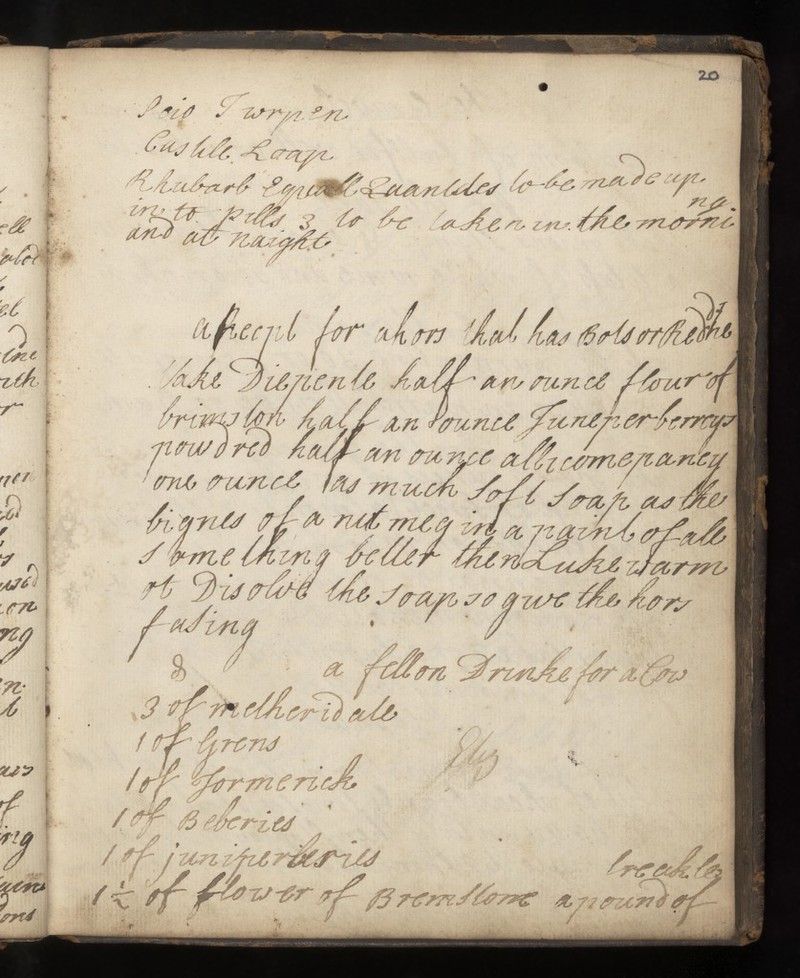 20
Twrpen
Castile Soap
Rhubarb Equall Quantites to be made up
in to pills 3 to be taken in the morni
ng
and at naight
a Recpt for a hors that has Bots or Red
Take Diepente half an ounce flour of
brimston half an ounce Juneper berreys
powdred half an ounce allicomepaney
one ounce as much Soft Soap as the
bignes of a nutmeg in a paint of ale
Something better then Lukewarm
ot Disolve the Soap so give the hors
fasting
a fellon Drinke for a Cow
3 of metheridate
1 of Grens
1 of Tormerick
1 of Beberies
1 of juniperberies
treakle
1½ of flower of Bremstone a pound of
ell
el
ith
ng
of
ing
ons